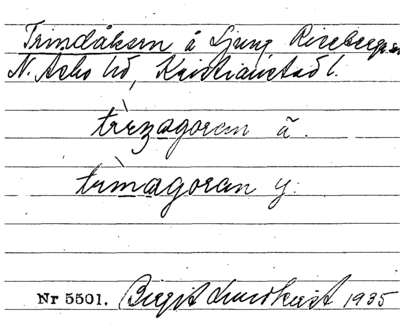 Trindåkern å Ljung Riseberga sn
N. Åsbo hd, Kristianstad l.
trìnagoran ä.
trìmagoran y.
Nr 5501. Birgit Lundkvist 1935